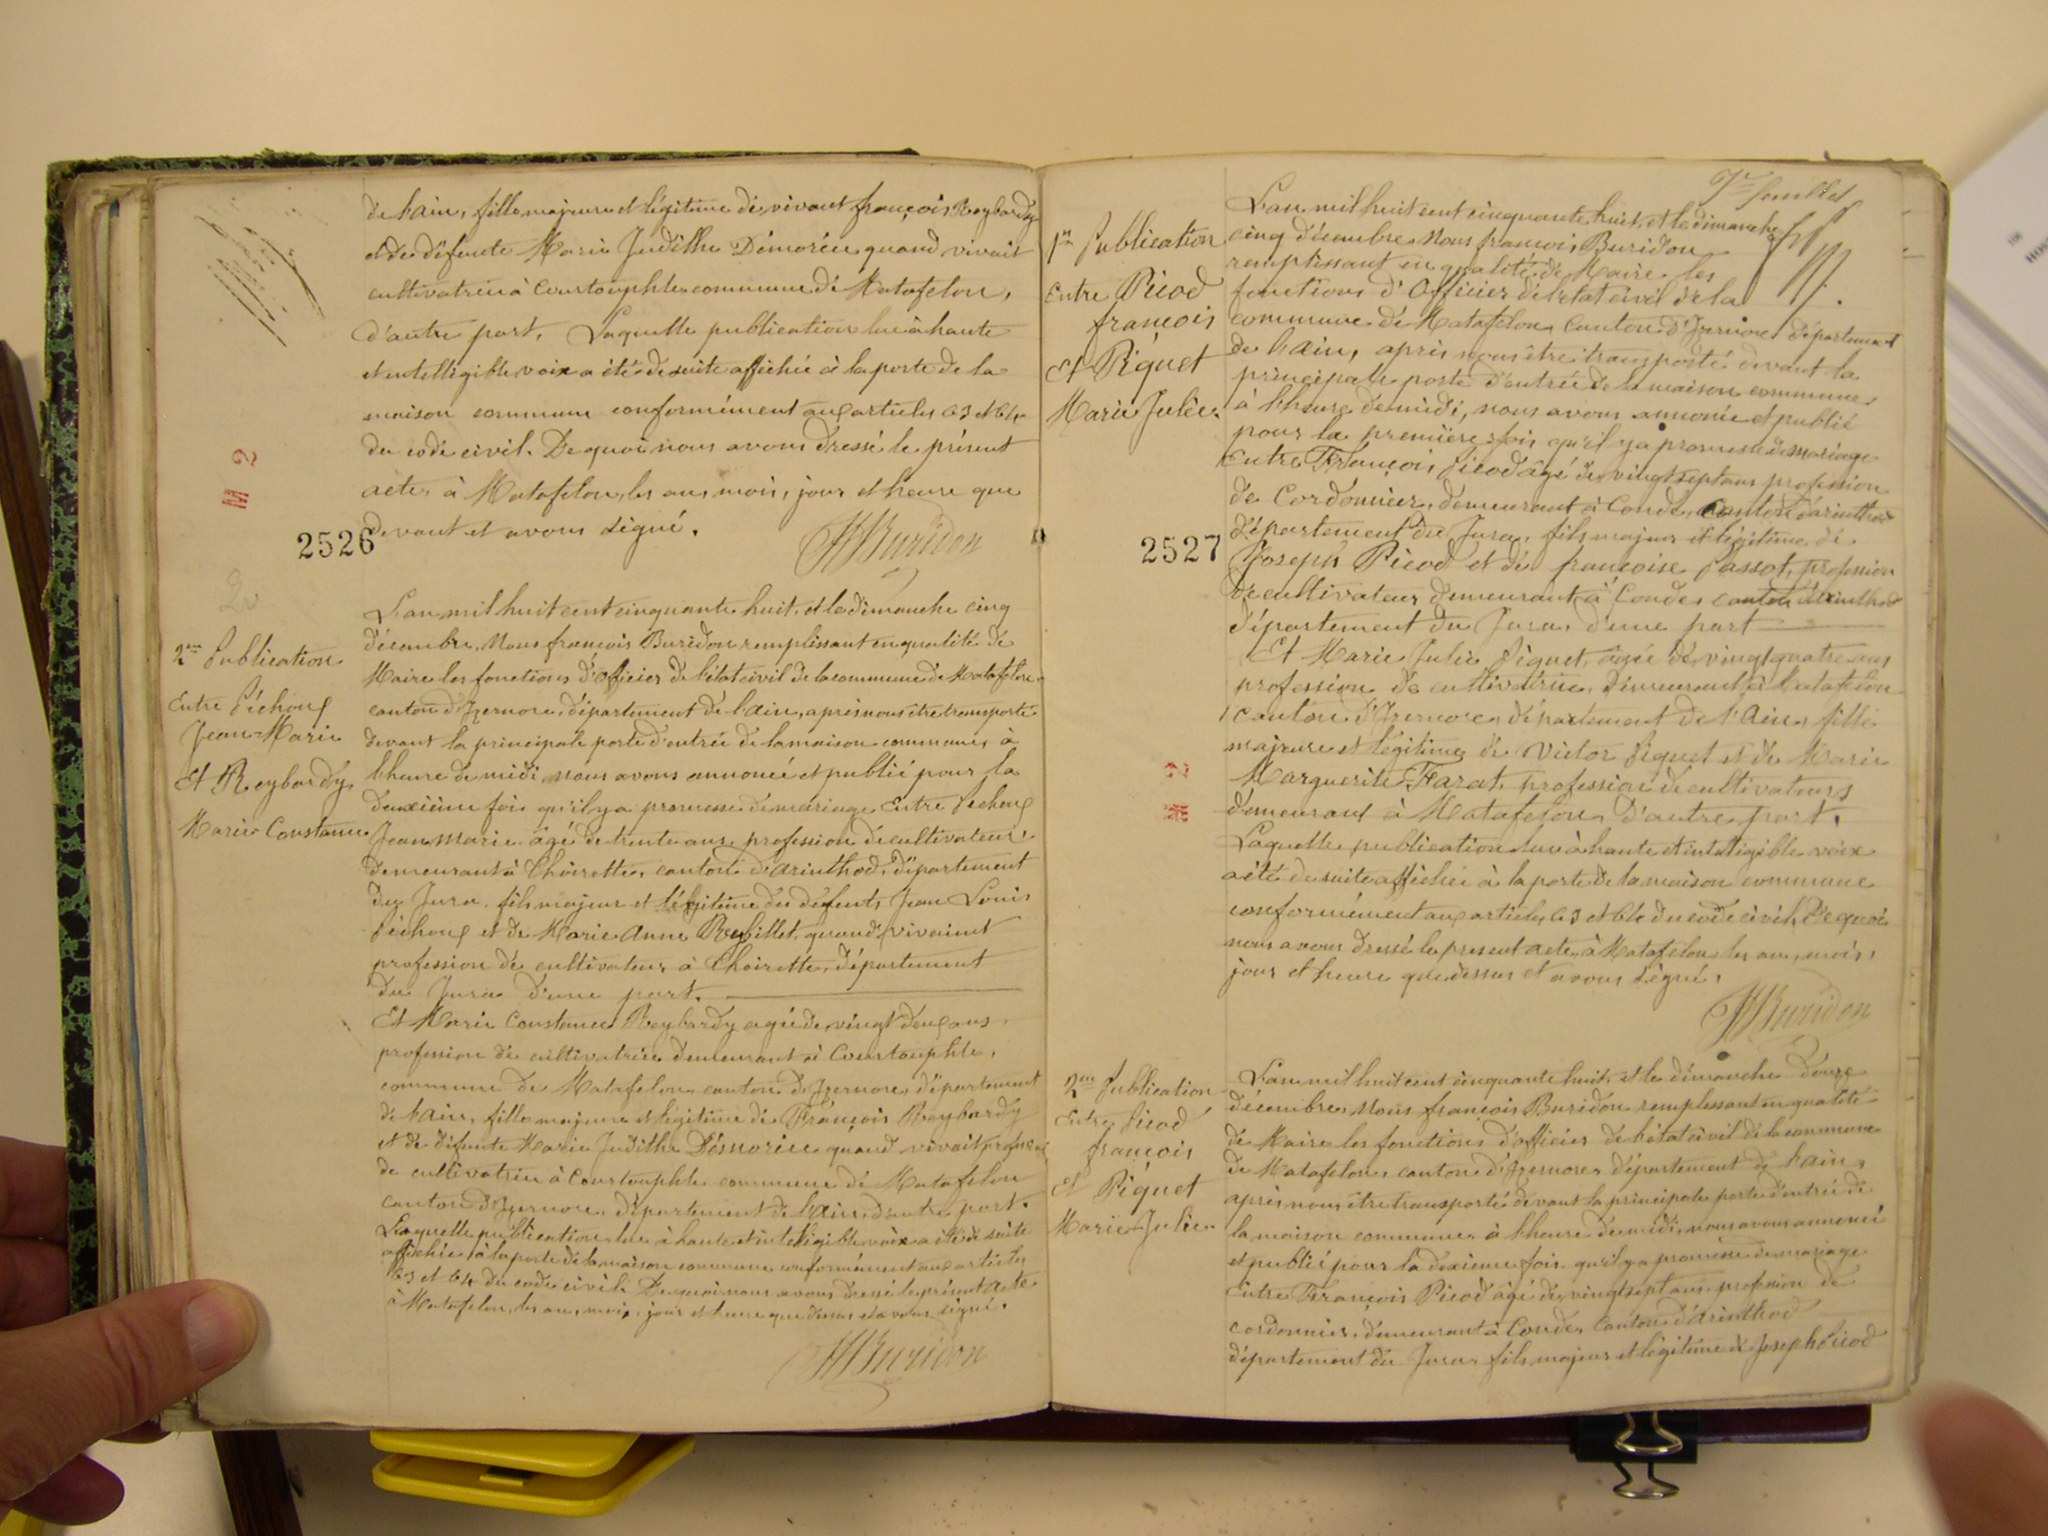 de l'ain, fille majeure et légitime de, vivant françois Reybardy
et de défunte Marie Judithe Démorée quand vivait
cultivatrice à Courtouphle commune de Matafelon,
d'autre part, Laquelle publication lue à haute
et intelligible voix a été de suite affichée à la porte de la
maison commune conformément aux articles 63 et 64
du code civil. De quoi nous avons dressé le présent
acte, à Matafelon, les an, mois, jour et heure que
devant et avons signé.
M 2
2526
Buridon
2me Publication
Entre Péchoux
Jean-Marie
Et Reybardy
Marie Constance
L'an mil huit cent cinquante huit, et le dimanche cinq
décembre, Nous françois Buridon remplissant en qualité de
Maire les fonctions d'officier de l'état civil de la commune de Matafelon
canton d'Izernore, département de l'ain, après nous être transporté
devant la principale porte d'entrée de la maison commune, à
l'heure de midi, nous avons annoncé et publié pour la
deuxième fois qu'il y a promesse de mariage Entre Péchoux
Jean Marie âgé de trente ans, profession de cultivateur
demeurant à Thoirette, canton d'arinthod, département
du Jura, fils majeur et légitime des défunts Jean Louis
Péchoux et de Marie Anne Reybillet, quand vivaient
profession de cultivateurs à Thoirette, département
du Jura d'une part.
Et Marie Constance Reybardy agée de vingt deux ans,
profession de cultivatrice demeurant à Courtouphle,
commune de Matafelon canton d'Izernore, département
de l'ain, fille majeure et légitime de François Reybardy
et de défunte Marie Judithe Démorée quand vivait profession
de cultivatrice à Courtouphle commune de Matafelon
canton d'Izernore, département de l'Ain, d'autre part.
Laquelle publication lue à haute et intelligible voix a été de suite
affichée à la porte de la maison commune conformément aux articles
63 et 64 du code civil. De quoi nous avons dressé le présent acte
à Matafelon, les an, mois, jour et heure que dessus et avons signé.
Buridon
7e feuillet
1re Publication
Entre Picod
françois
Et Piguet
Marie Julie
2527
L'an mil huit cent cinquante huit, et le dimanche
cinq décembre, Nous françois Buridon
remplissant en qualité de Maire les
fonctions d'Officier de l'état civil de la
commune de Matafelon, Canton d'Izernore, département
de l'ain, après nous être transporté devant la
principale porte d'entrée de la maison commune
à l'heure de midi, nous avons annoncé et publié
pour la première fois qu'il y a promesse de mariage
Entre François Picod âgé de vingt sept ans profession
de Cordonnier, demeurant à Condes, Canton d'arinthod
département du Jura, fils majeur et légitime de
Joseph Picod et de françoise Passot, profession
de cultivateur demeurant à Condes canton d'arinthod
département du Jura, d'une part
Et Marie Julie Piguet, agée de vingt quatre ans
profession de cultivatrice, demeurant à Matafelon
canton d'Izernore, département de l'Ain, fille
majeure et légitime de Victor Piguet et de Marie
Marguerite Farat, profession de cultivateurs
demeurant à Matafelon, d'autre part.
Laquelle publication lue à haute et intelligible voix
a été de suite affichée à la porte de la maison commune
conformément aux articles 63 et 64 du code civil, De quoi
nous avons dressé le présent acte, à Matafelon les an, mois,
jour et heure que dessus et avons signé.
M 2
Buridon
2me Publication
Entre Picod
françois
Et Piguet
Marie-Julie
L'an mil huit cent cinquante huit, et le dimanche douze
décembre, Nous françois Buridon remplissant en qualité
de Maire les fonctions d'officier de l'état civil de la commune
de Matafelon, canton d'Izernore, département de l'ain,
après nous être transporté devant la principale porte d'entrée de
la maison commune à l'heure de midi, nous avons annoncé
et publié pour la dexieme fois qu'il y a promesse de mariage
Entre François Picod âgé de vingt sept ans, profession de
cordonnier, demeurant à Condes, Canton d'arinthod
département du Jura, fils majeur et légitime de Joseph Picod